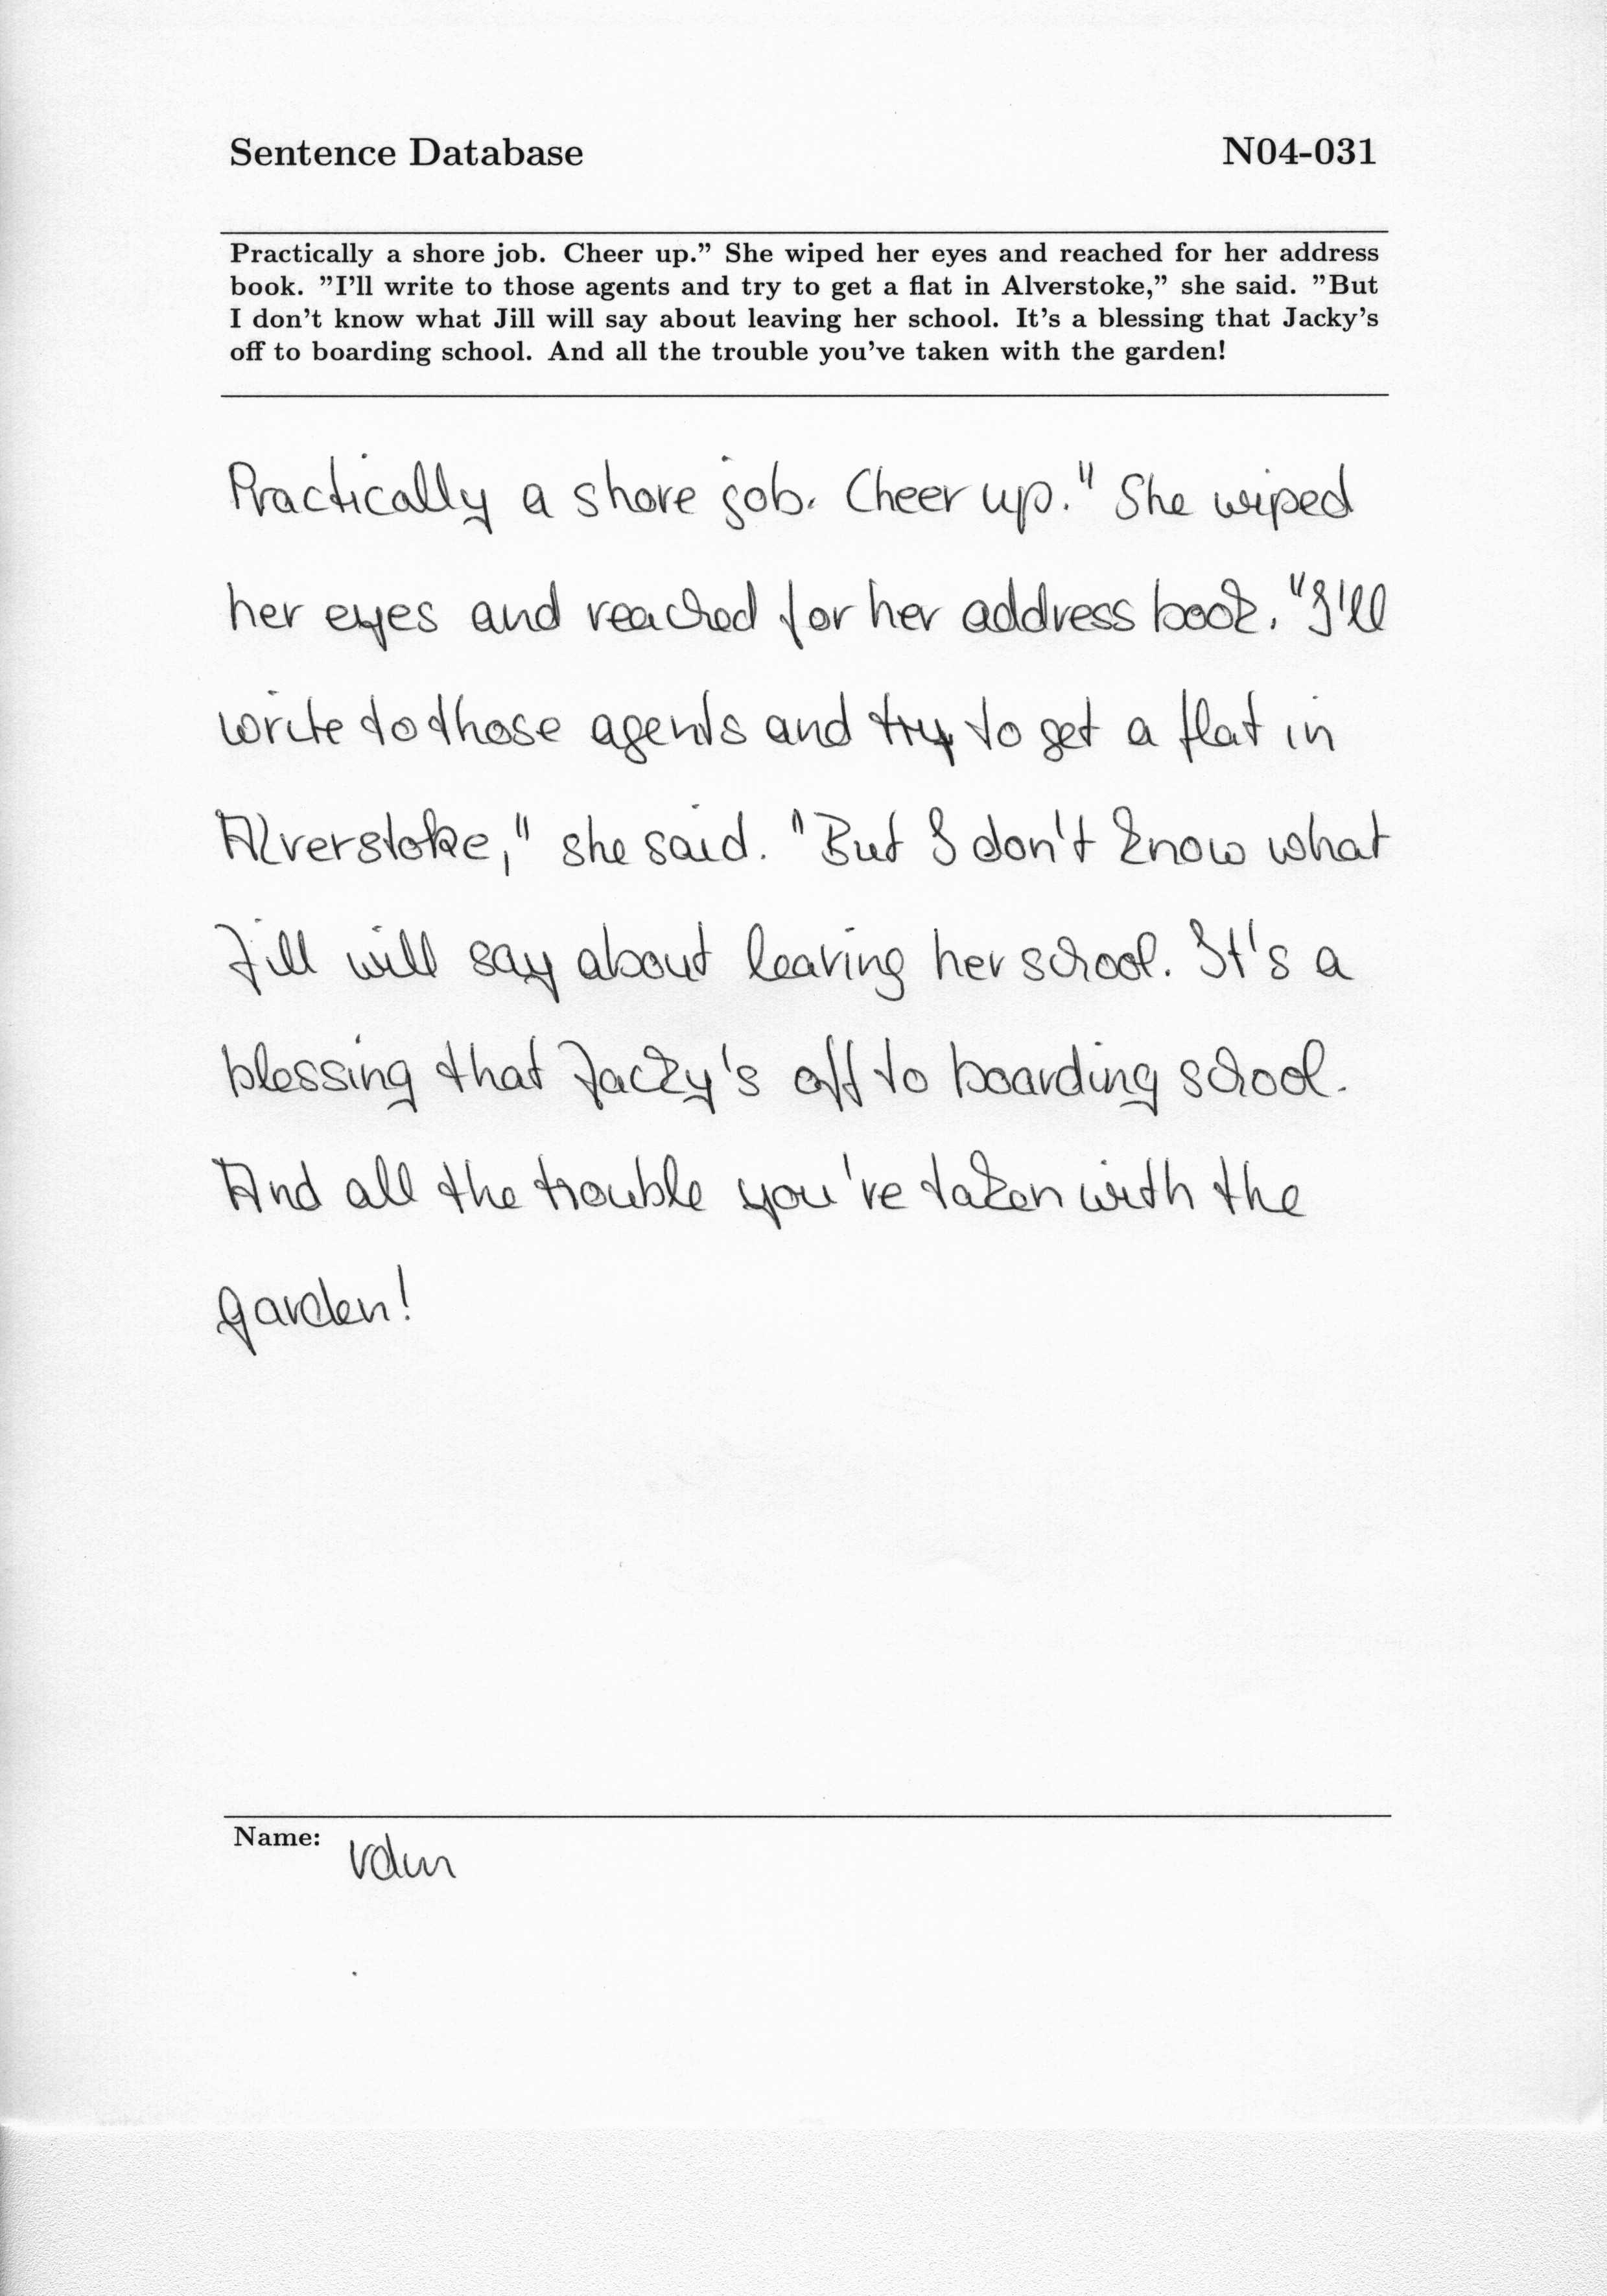 Sentence Database N04-031
Practically a shore job. Cheer up.” She wiped her eyes and reached for her address
book. ”I’ll write to those agents and try to get a flat in Alverstoke,” she said. ”But
I don’t know what Jill will say about leaving her school. It’s a blessing that Jacky’s
off to boarding school. And all the trouble you’ve taken with the garden!
Practically a shore job. Cheer up." She wiped
her eyes and reached for her address book. "I'll
write to those agents and try to get a flat in
Alverstoke," she said. "But I don't know what
Jill will say about leaving her school. It's a
blessing that Jacky's off to boarding school.
And all the trouble you've taken with the
garden!
Name: